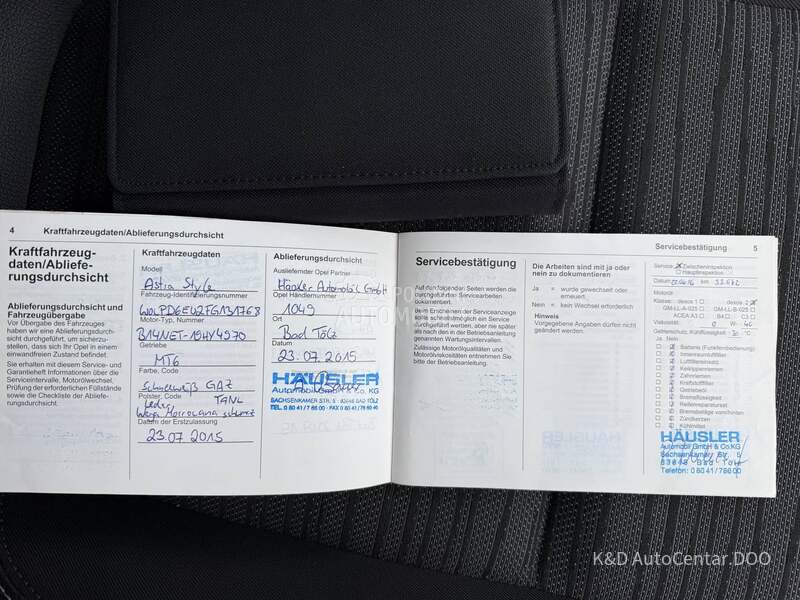 4 Kraftfahrzeugdaten/Ablieferungsdurchsicht
Kraftfahrzeug-
daten/Abliefe-
rungsdurchsicht
Ablieferungsdurchsicht und
Fahrzeugübergabe
Vor Übergabe des Fahrzeuges
haben wir eine Ablieferungsdurch-
sicht durchgeführt, um sicherzu-
stellen, dass sich Ihr Opel in einem
einwandfreien Zustand befindet.
Sie erhalten mit diesem Service- und
Garantieheft Informationen über die
Serviceintervalle, Motorölwechsel,
Prüfung der erforderlichen Füllstände
sowie die Checkliste der Ablieferungsdurchsicht.
Kraftfahrzeugdaten
Modell
Astra Style
Fahrzeug-Identifizierungsnummer
W0LPD6EU2FG131768
Motor-Typ, Nummer
B14NET-19HY4970
Getriebe
MT6
Farbe, Code
GAZ
Polster, Code
Leder TANL
Datum der Erstzulassung
23.07.2015
Ablieferungsdurchsicht
Ausliefernder Opel Partner
Häusler Automobil GmbH
Opel Händlernummer
1049
Ort
Bad Tölz
Datum
23.07.2015
HÄUSLER
Automobil GmbH & Co. KG
SACHSENKAMER STR. 5 · 83646 BAD TÖLZ
TEL. 0 80 41 / 7 66 00 · FAX 0 80 41 / 7 66 0 40
Servicebestätigung 5
Servicebestätigung
Auf den folgenden Seiten werden die
durchgeführten Servicearbeiten
dokumentiert.
Beim Erscheinen der Serviceanzeige
sollte schnellstmöglich ein Service
durchgeführt werden, aber nie später
als nach den in der Betriebsanleitung
genannten Wartungsintervallen.
Zulässige Motorölqualitäten und
Motorölviskositäten entnehmen Sie
bitte der Betriebsanleitung.
Die Arbeiten sind mit ja oder
nein zu dokumentieren
Ja = wurde gewechselt oder
erneuert.
Nein = kein Wechsel erforderlich
Hinweis
Vorgegebene Angaben dürfen nicht
geändert werden.
Service Zwischeninspektion
Hauptinspektion
Datum km
Motoröl
Klasse: dexos 1 dexos 2
GM-LL-A-025 GM-LL-B-025
ACEA A3 B4 C3
Viskosität: 0 W 40
Gefrierschutz, Kühlflüssigkeit: °C
Ja Nein
Batterie (Funktionsbedienung)
Innenraumluftfilter
Luftfiltereinsatz
Keilrippenriemen
Zahnriemen
Kraftstofffilter
Getriebeöl
Bremsflüssigkeit
Reifenreparaturset
Bremsbeläge vorn/hinten
Zündkerzen
Kühlmittel
HÄUSLER
Automobil GmbH & Co. KG
Sachsenkamer Str. 5
83646 Bad Tölz
Telefon: 0 80 41 / 766 00
K&D AutoCentar.DOO